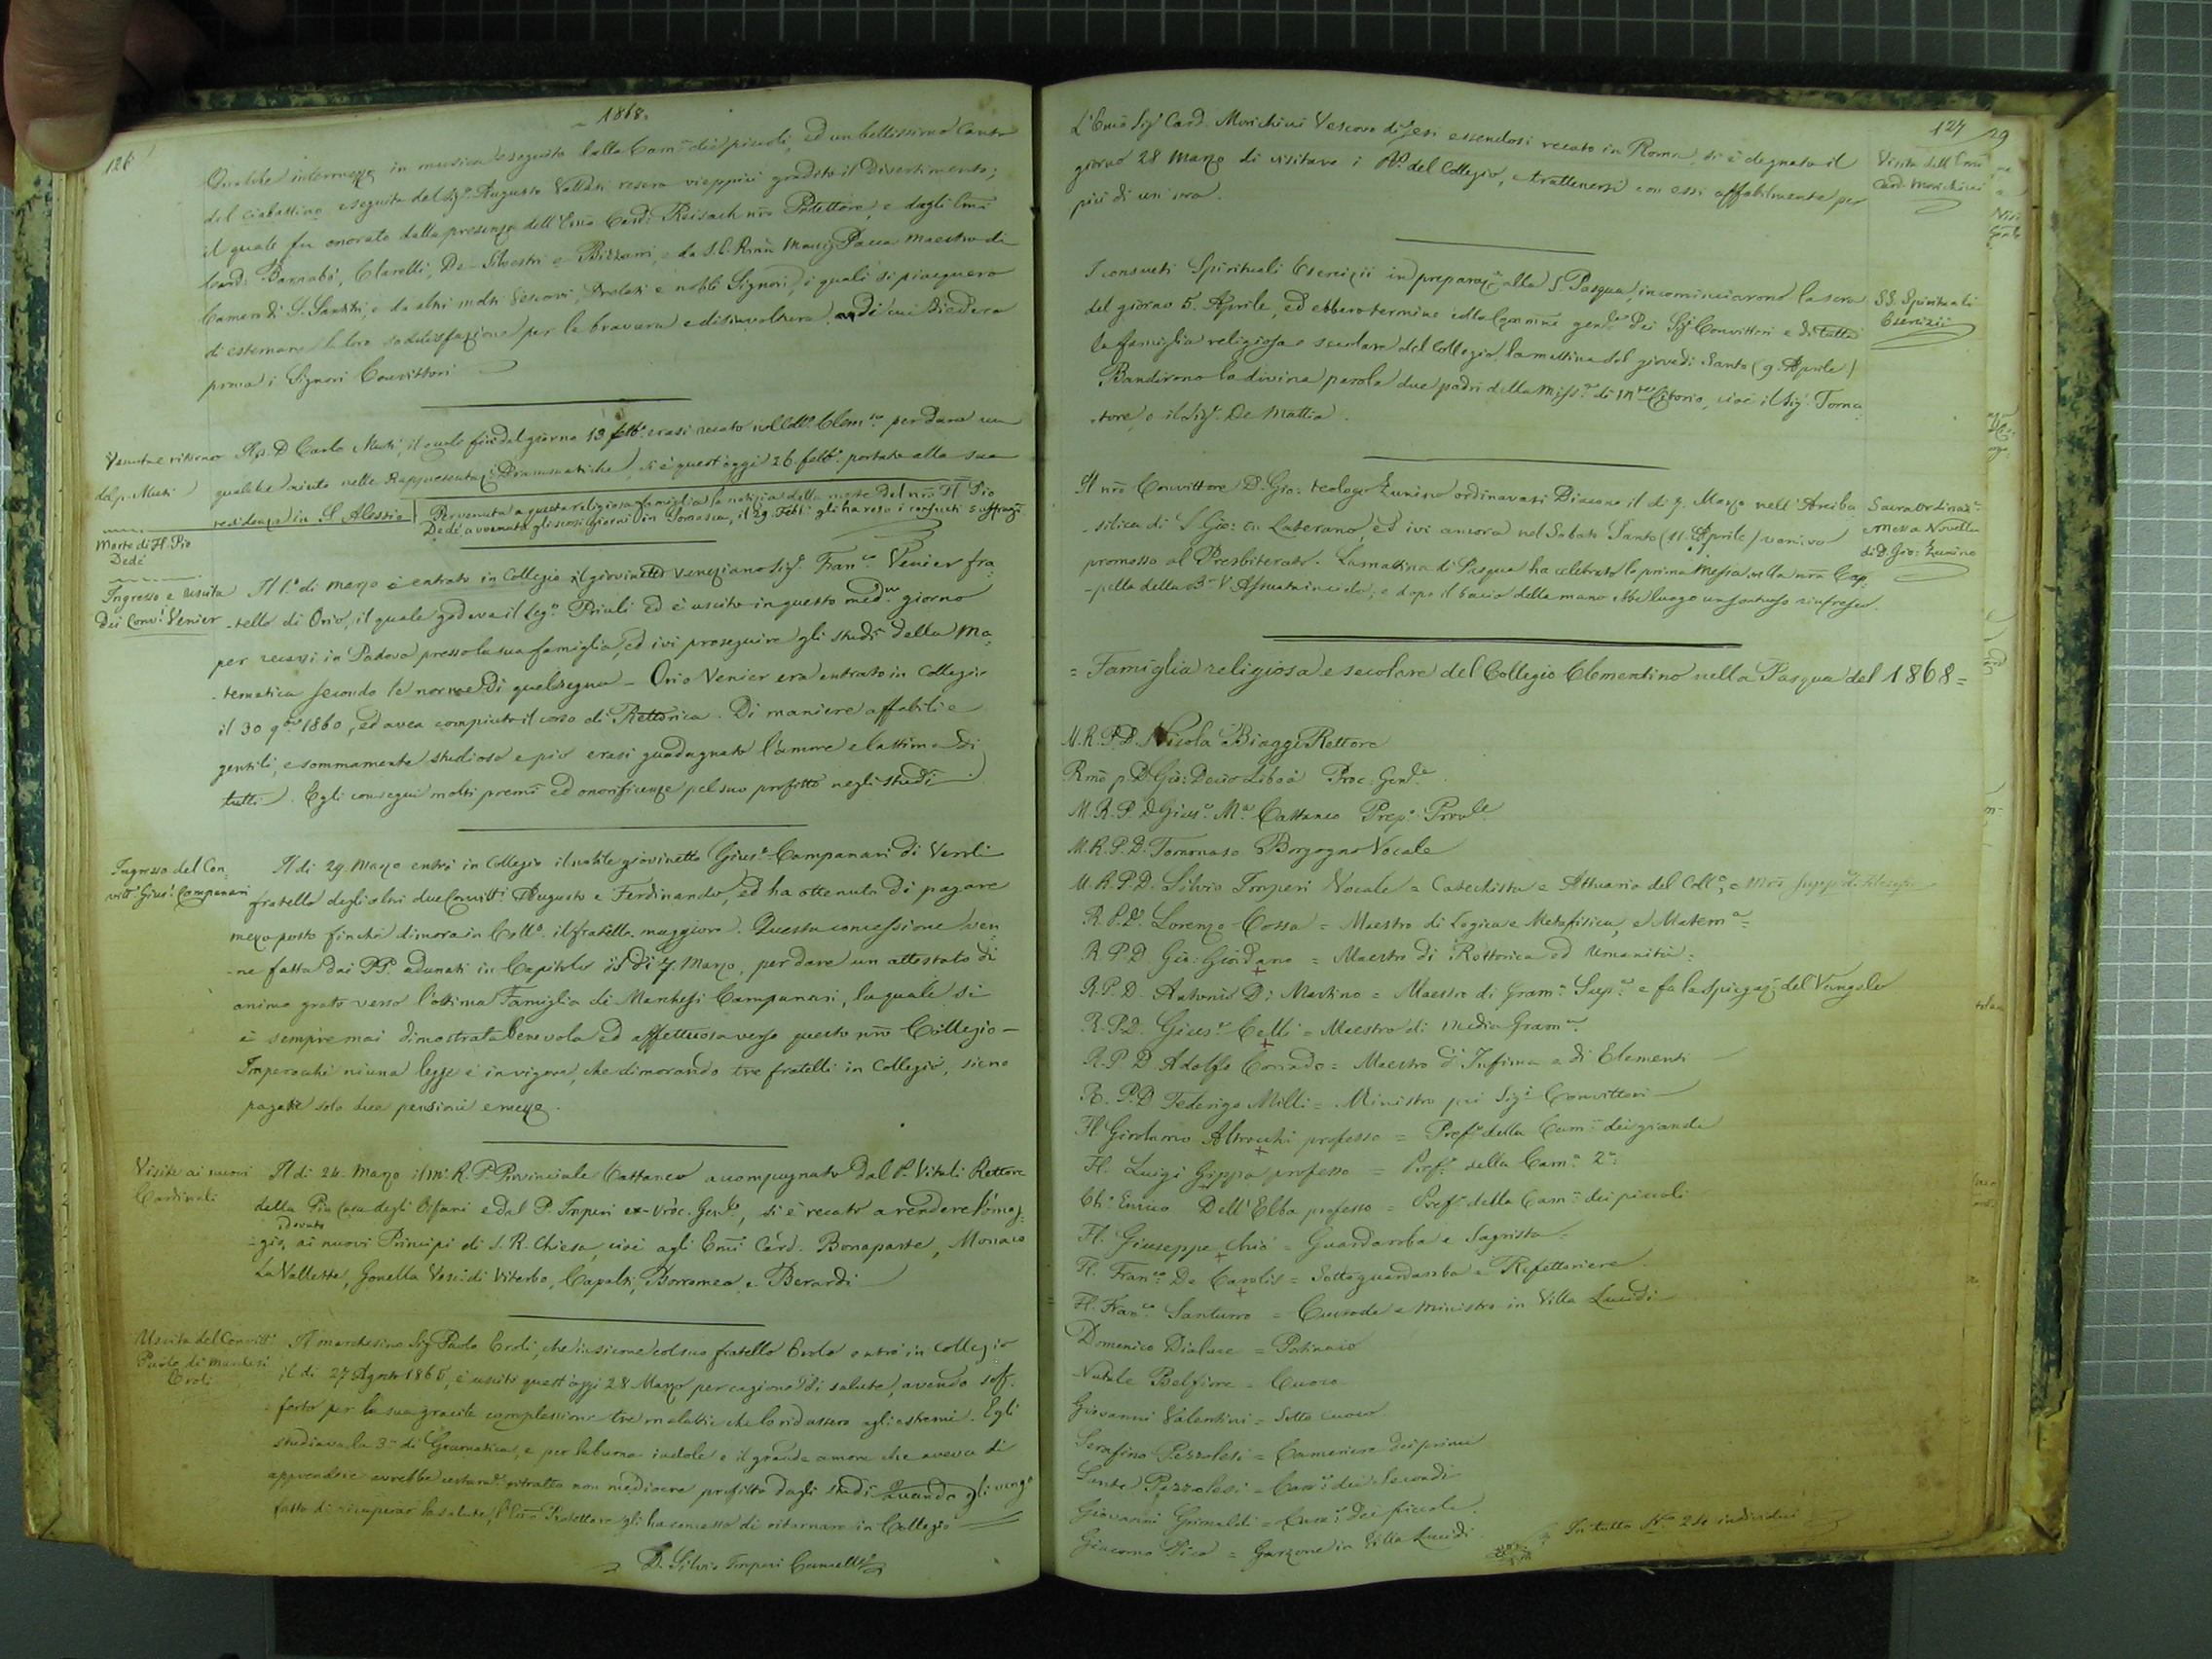 126
1868.
Qualche intermezzo in musica eseguito dalla Cam.ª dei piccoli, ed un bellissimo Canto
del ciabattino eseguito dal Sig.r Augusto resero vieppiù gradito il Divertimento;
il quale fu onorato dalla presenza dell'Emo Card. Reisach nro Protettore, e dagli Emi
Card. Barnabò, Clarelli, De-Silvestri e Bizzarri, e da S. E. Rma Pacca Maestro di
Camera di S. Santità, e da altri molti Vescovi, Prelati e nobili Signori, i quali si piacquero
di esternare la loro soddisfazione per la bravura e disinvoltura di cui diedero
prova i Signori Convittori
Venuta e ritorno
del p. Muti
Il p. D. Carlo Muti, il quale fin dal giorno 19 febb.º erasi recato nel Coll.º Clem.no per dare un
qualche aiuto nelle Rappresentaz.i Drammatiche, si è quest'oggi 26. febb.º portato alla sua
residenza in S. Alessio
Morte di Fl. Pio
Dedè
Pervenuta a questa religiosa famiglia la notizia della morte del nro Fl. Pio
Dedè avvenuta gli scorsi giorni in Somasca, il 29. Febb.º gli ha reso i consueti suffragi
Ingresso e uscita
dei Conv.i Venier
Il 1.º di marzo è entrato in Collegio il giovinetto veneziano Sig.r Fran.co Venier fra-
-tello di Orio, il quale godeva il leg.º Priuli ed è uscito in questo med.mo giorno
per recarsi in Padova presso la sua famiglia, ed ivi proseguire gli studi della Ma-
-tematica secondo le norme di quel regno - Orio Venier era entrato in Collegio
il 30 9bre 1860, ed avea compiuto il corso di Rettorica. Di maniere affabili e
gentili, e sommamente studioso e pio erasi guadagnato l'amore e la stima di
tutti. Egli conseguì molti premi ed onorificenze pel suo profitto negli studi
Ingresso del Con-
vitt.e Gius.e Campanari
Il dì 29. Marzo entrò in Collegio il nobile giovinetto Gius.e Campanari di Veroli
fratello degli altri due Convitt.i Augusto e Ferdinando, ed ha ottenuto di pagare
mezzo posto finchè dimora in Coll.º il fratello maggiore. Questa concessione ven-
-ne fatta dai PP. adunati in Capitolo il dì 7. Marzo, per dare un attestato di
animo grato verso l'ottima Famiglia di Marchesi Campanari, la quale si
è sempre mai dimostrata benevola ed affettuosa verso questo nro Collegio -
Imperocchè niuna legge è in vigore, che dimorando tre fratelli in Collegio, sieno
pagate solo due pensioni e mezzo.
Visite ai nuovi
Cardinali
Il dì 24. Marzo il M. R. P. Provinciale Cattaneo accompagnato dal P. Vitali Rettore
della Pia Casa degli Orfani e dal P. Imperi ex-Proc. Gen.le, si è recato a rendere l'omag-
-gio dovuto ai nuovi Principi di S. R. Chiesa, cioè agli Emi Card. Bonaparte, Monaco
La Valletta, Gonella Vesc. di Viterbo, Capalti, Borromeo, e Berardi
Uscita del Convitt.
Paolo di Marchesi
Eroli
Il marchesino Sig.r Paolo Eroli, che insieme col suo fratello entrò in Collegio
il dì 27 Agosto 1866, è uscito quest'oggi 28 Marzo per cagione di salute, avendo sof-
ferto per la sua gracile complessione tre malattie che lo ridussero agli estremi. Egli
studiava la 3.ª di Grammatica, e per la buona indole e il grande amore che aveva di
apprendere avrebbe ritratto non mediocre profitto dagli studi. Quando gli venga
fatto di ricuperar la salute, l'Emo Protettore gli ha concesso di ritornare in Collegio
D. Silvio Imperi Cancell.e
127
29
L'Emo Sig.r Card. Morichini Vescovo di Jesi essendosi recato in Roma, si è degnato il
giorno 28 Marzo di visitare i PP. del Collegio, e trattenersi con essi affabilmente per
più di un'ora.
Visita dell'Emo
Card. Morichini
I consueti Spirituali Esercizii in preparaz.e alla S. Pasqua, incominciarono la sera
del giorno 5. Aprile, ed ebbero termine colla Comnne gen.le dei Sigi Convittori e di tutta
la famiglia religiosa e secolare del Collegio la mattina del giovedì Santo (9. Aprile)
Bandirono la divina parola due padri della Miss.e di M.te Citorio, cioè il Sig.r Torna-
-tore, e il Sig.r De Mattia.
SS. Spirituali
Esercizii
Il nro Convittore D. Gio: teologo Zunino ordinavasi Diacono il dì 7. Marzo nell'Arciba-
-silica di S. Gio: in Laterano, ed ivi ancora nel Sabato Santo (11. Aprile) veniva
promosso al Presbiterato. La mattina di Pasqua ha celebrato la prima Messa nella nra Cap-
-pella della B. V. Assunta in cielo, e dopo il bacio della mano ebbe luogo un sontuoso rinfresco.
Sacra ordinaz.e
e Messa Novella
di D. Gio: Zunino
= Famiglia religiosa e secolare del Collegio Clementino nella Pasqua del 1868 =
M. R. P. D. Nicola Biaggi Rettore
Rmo p. D. Gio: Decio Libois Proc. Gen.le
M. R. P. D. Gius.e M.ª Cattaneo Prep.º Prov.le
M. R. P. D. Tommaso Borgogno Vocale
M. R. P. D. Silvio Imperi Vocale = Catechista e Attuario del Coll.º, e Mro supp.
R. P. D. Lorenzo Cossa = Maestro di Logica e Metafisica, e Matem.ª =
R. P. D. Gio: Giordano = Maestro di Rettorica ed Umanità =
R. P. D. Antonio Di Martino = Maestro di Gram.ª Sup.re e fa la spiegaz.e del Vangelo
R. P. D. Gius.e Celli = Maestro di media Gram.ª
R. P. D. Adolfo Conrado = Maestro d'Infima e di Elementi -
R. P. D. Federigo Milli = Ministro pei Sig.i Convittori -
Fl. Girolamo Altrocchi professo = Pref.º della Cam.ª dei grandi
Fl. Luigi Gippa professo = Pref.º della Cam.ª 2.ª
Ch.º Enrico Dell'Elba professo = Pref.º della Cam.ª dei piccoli
Fl. Giuseppe Chiò = Guardaroba e Sagrista.
Fl. Fran.co De Carolis = Sottoguardaroba e Refettoriere.
Fl. Fran.co Santurro = Custode e Ministro in Villa Lucidi
Domenico = Portinaio
Natale Belfiore = Cuoco
Giovanni Valentini = Sotto cuoco
Serafino Pezzolesi = Cameriere dei primi
Sante Pezzolesi = Cam.e dei Secondi
Giovanni Grimaldi = Cam.e dei piccoli.
Giacomo Pica = Garzone in Villa Lucidi.
In tutto N.º 24 individui